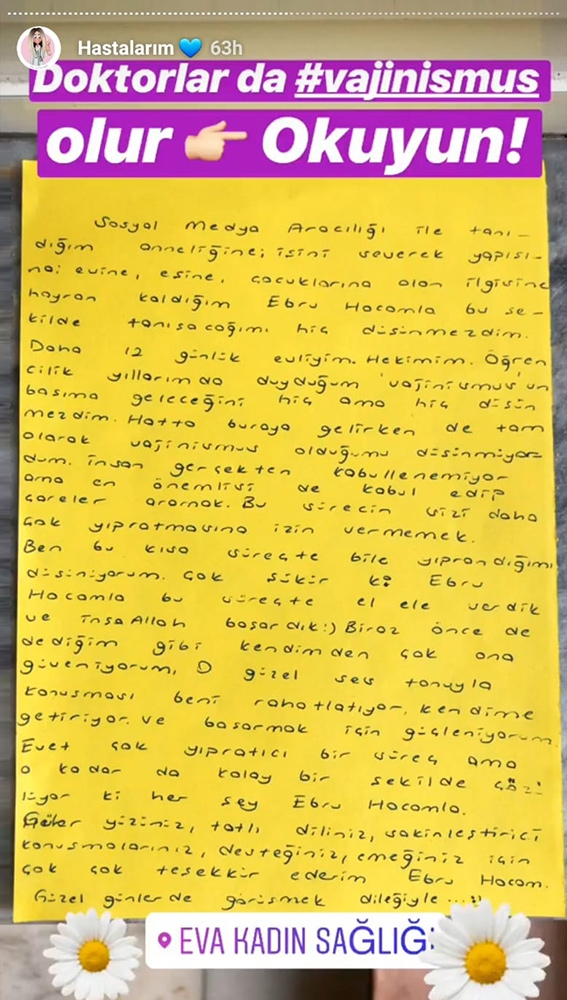 Hastalarım 💙 63h
Doktorlar da #vajinismus
olur 👉🏻 Okuyun!
Sosyal Medya Aracılığı ile tanı-
dığım anneliğine; işini severek yapışı-
na; evine, eşine, çocuklarına olan ilgisine
hayran kaldığım Ebru Hocamla bu şe-
kilde tanışacağımı hiç düşünmezdim.
Daha 12 günlük evliyim. Hekimim. Öğren
cilik yıllarımda duyduğum 'vajinismus'un
başıma geleceğini hiç ama hiç düşün
mezdim. Hatta buraya gelirken de tam
olarak vajinismus olduğumu düşünmüyor-
dum. İnsan gerçekten kabullenemiyor
ama en önemlisi de kabul edip
çareler aramak. Bu sürecin sizi daha
çok yıpratmasına izin vermemek.
Ben bu kısa süreçte bile yıprandığımı
düşünüyorum. Çok şükür ki Ebru
Hocamla bu süreçte el ele verdik
ve İnşaAllah başardık:) Biraz önce de
dediğim gibi kendimden çok ona
güveniyorum, O güzel ses tonuyla
konuşması beni rahatlatıyor, kendime
getiriyor. ve başarmak için güçleniyorum.
Evet çok yıpratıcı bir süreç ama
o kadar da kolay bir şekilde çözü
lüyor ki her şey Ebru Hocamla.
Güler yüzünüz, tatlı diliniz, sakinleştirici
konuşmalarınız, desteğiniz, emeğiniz için
çok çok teşekkür ederim Ebru Hocam.
Güzel günlerde görüşmek dileğiyle...:)
EVA KADIN SAĞLIĞI